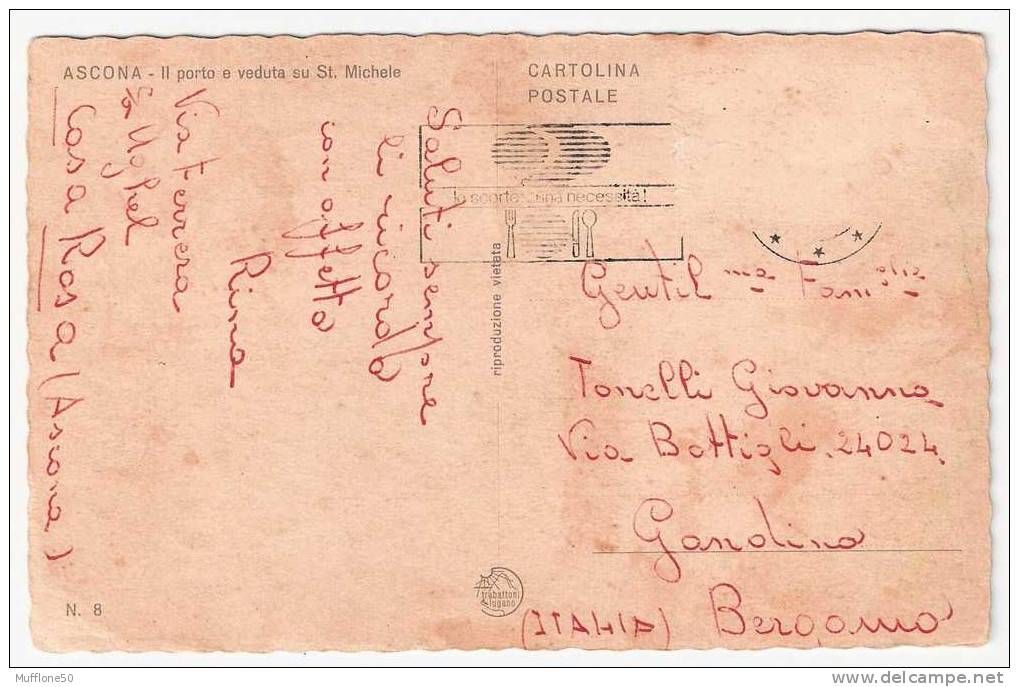 ASCONA - Il porto e veduta su St. Michele
CARTOLINA
POSTALE
Saluti sempre
li ricordo
con affetto
Rina
Via Ferrera
Casa Rosa (Ascona)
la scorta: una necessità!
riproduzione vietata
Gentil ma Famiglia
Tonelli Giovanna
Via Bottigli. 24024
Gandino
(ITALIA) Bergamo
trabattoni
lugano
N. 8
Mufflone50
www.delcampe.net